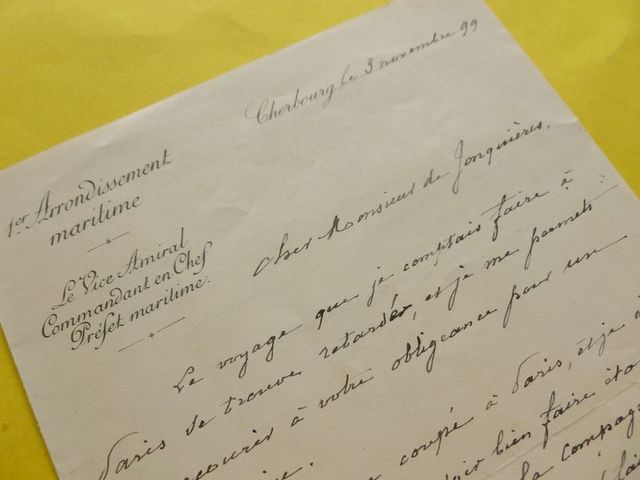 Cherbourg le 3 novembre 99
1er Arrondissement
maritime
Le Vice Amiral
Commandant en Chef
Préfet maritime.
Cher Monsieur de Jonquières,
Le voyage que je comptais faire à
Paris se trouve retardé, et je me permets
recourir à votre obligeance pour un
coupé à Paris, et je
bien faire
la compag